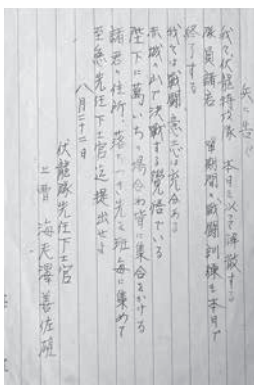 兵に告ぐ
我々伏龍特攻隊 本日を以て解散する
隊員諸君 短期間の戦闘訓練を本日で
終了する
我々は戦闘意志は充分ある
赤城の山で決戦する覚悟でいる
陛下に萬いちの場合は皆に集合をかける
諸君の住所、落ちつき先を班毎に集めて
至急先任下士官迄提出せよ
八月二十二日
伏龍隊先任下士官
上曹 海老澤善佐雄